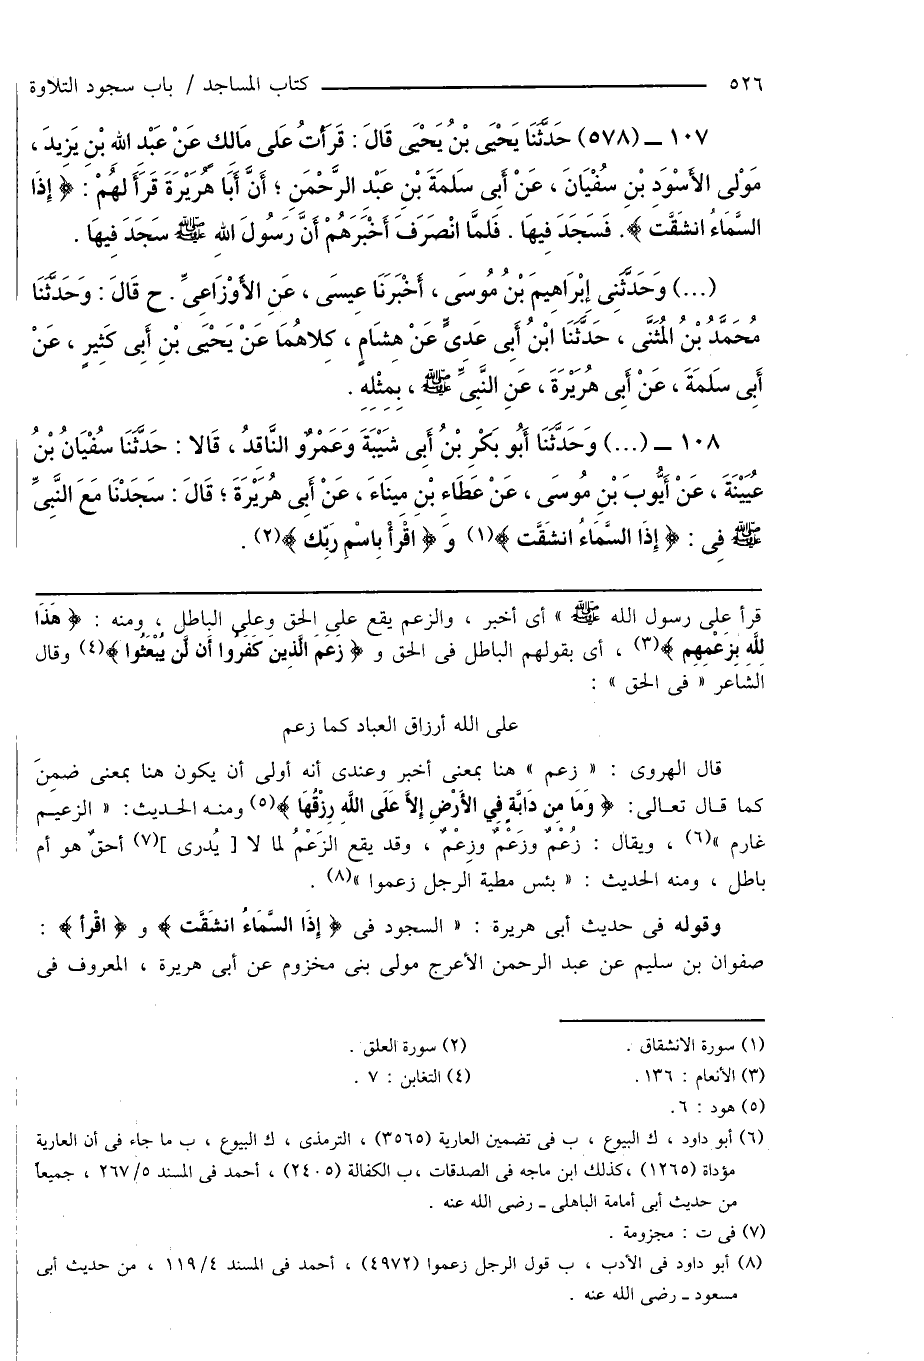 ٥٢٦ ــــــــــــــــ كتاب المساجد / باب سجود التلاوة
١٠٧ ـ (٥٧٨) حَدَّثَنَا يَحْيَى بْنُ يَحْيَى قَالَ : قَرَأتُ عَلَى مَالك عَنْ عَبْد الله بْنِ يَزِيدَ ،
مَوْلَى الأسْوَدِ بْنِ سُفْيَانَ ، عَنْ أبِى سَلمَةَ بْنِ عَبْد الرَّحْمَنِ ؛ أنَّ أبَا هُرَيْرَةَ قَرَأ لهُمْ : ﴿ إذَا
السَّمَاءُ انشَقَّت ﴾. فَسَجَدَ فيهَا . فَلمَّا انْصَرَفَ أخْبَرَهُمْ أنَّ رَسُولَ الله ﷺ سَجَدَ فيهَا .
(...) وَحَدَّثَنِى إبْرَاهِيمَ بْنُ مُوسَى ، أخْبَرَنَا عيسَى ، عَنِ الأوْزَاعِىِّ . ح قَالَ : وَحَدَّثَنَا
مُحَمَّدُ بْنُ المُثَنَّى ، حَدَّثَنَا ابْنُ أبِى عَدِىٍّ عَنْ هِشَامٍ ، كلاهُمَا عَنْ يَحْيَى بْنِ أبِى كَثِيرٍ ، عَنْ
أبِى سَلمَةَ ، عَنْ أبِى هُرَيْرَةَ ، عَنِ النَّبِىِّ ﷺ ، بِمثْله .
١٠٨ ـ (...) وَحَدَّثَنَا أبُو بَكْرِ بْنُ أبِى شَيْبَةَ وَعَمْرٌو النَّاقدُ ، قَالا : حَدَّثَنَا سُفْيَانُ بْنُ
عُيَيْنَةَ ، عَنْ أيُّوبَ بْنِ مُوسَى ، عَنْ عَطَاء بْنِ ميناءَ ، عَنْ أبِى هُرَيْرَةَ ؛ قَالَ : سَجَدْنَا مَعَ النَّبِىِّ
ﷺ فِى : ﴿ إذَا السَّمَاءُ انشَقَّت ﴾(١) وَ ﴿ اقْرأْ باسْمِ رَبِّك ﴾(٢) .
قرأ على رسول الله ﷺ » أى أخبر ، والزعم يقع على الحق وعلى الباطل ، ومنه : ﴿ هَذَا
للَّه بِزَعْمهِم ﴾(٣) ، أى بقولهم الباطل فى الحق و ﴿ زَعَمَ الَّذِينَ كَفَرُوا أَن لَّن يُبْعَثُوا ﴾(٤) وقال
الشاعر « فى الحق » :
على الله أرزاق العباد كما زعم
قال الهروى : « زعم » هنا بمعنى أخبر وعندى أنه أولى أن يكون هنا بمعنى ضمنَ
كما قال تعالى: ﴿ وَمَا مِن دَابَّة فِي الأَرْضِ إلاَّ عَلَى اللَّهِ رِزْقُهَا ﴾(٥) ومنه الحديث: « الزعيم
غارم »(٦) ، ويقال : زُعْمٌ وزَعْمٌ وزِعْمٌ ، وقد يقع الزَعْمُ لما لا [ يُدرى ](٧) أحقٌ هو أم
باطل ، ومنه الحديث : « بئس مطية الرجل زعموا »(٨) .
وقوله فى حديث أبى هريرة : « السجود فى ﴿ إذَا السَّمَاءُ انشَقَّت ﴾ و ﴿ اقْرأ ﴾ :
صفوان بن سليم عن عبد الرحمن الأعرج مولى بنى مخزوم عن أبى هريرة ، المعروف فى
(١) سورة الانشقاق . (٢) سورة العلق .
(٣) الأنعام : ١٣٦. (٤) التغابن : ٧ .
(٥) هود : ٦.
(٦) أبو داود ، ك البيوع ، ب فى تضمين العارية (٣٥٦٥) ، الترمذى ، ك البيوع ، ب ما جاء فى أن العارية
مؤداة (١٢٦٥) ،كذلك ابن ماجه فى الصدقات ،ب الكفالة (٢٤٠٥) ، أحمد فى المسند ٢٦٧/٥ ، جميعاً
من حديث أبى أمامة الباهلى ـ رضى الله عنه .
(٧) فى ت : مجزومة .
(٨) أبو داود فى الأدب ، ب قول الرجل زعموا (٤٩٧٢) ، أحمد فى المسند ١١٩/٤ ، من حديث أبى
مسعود ـ رضى الله عنه .